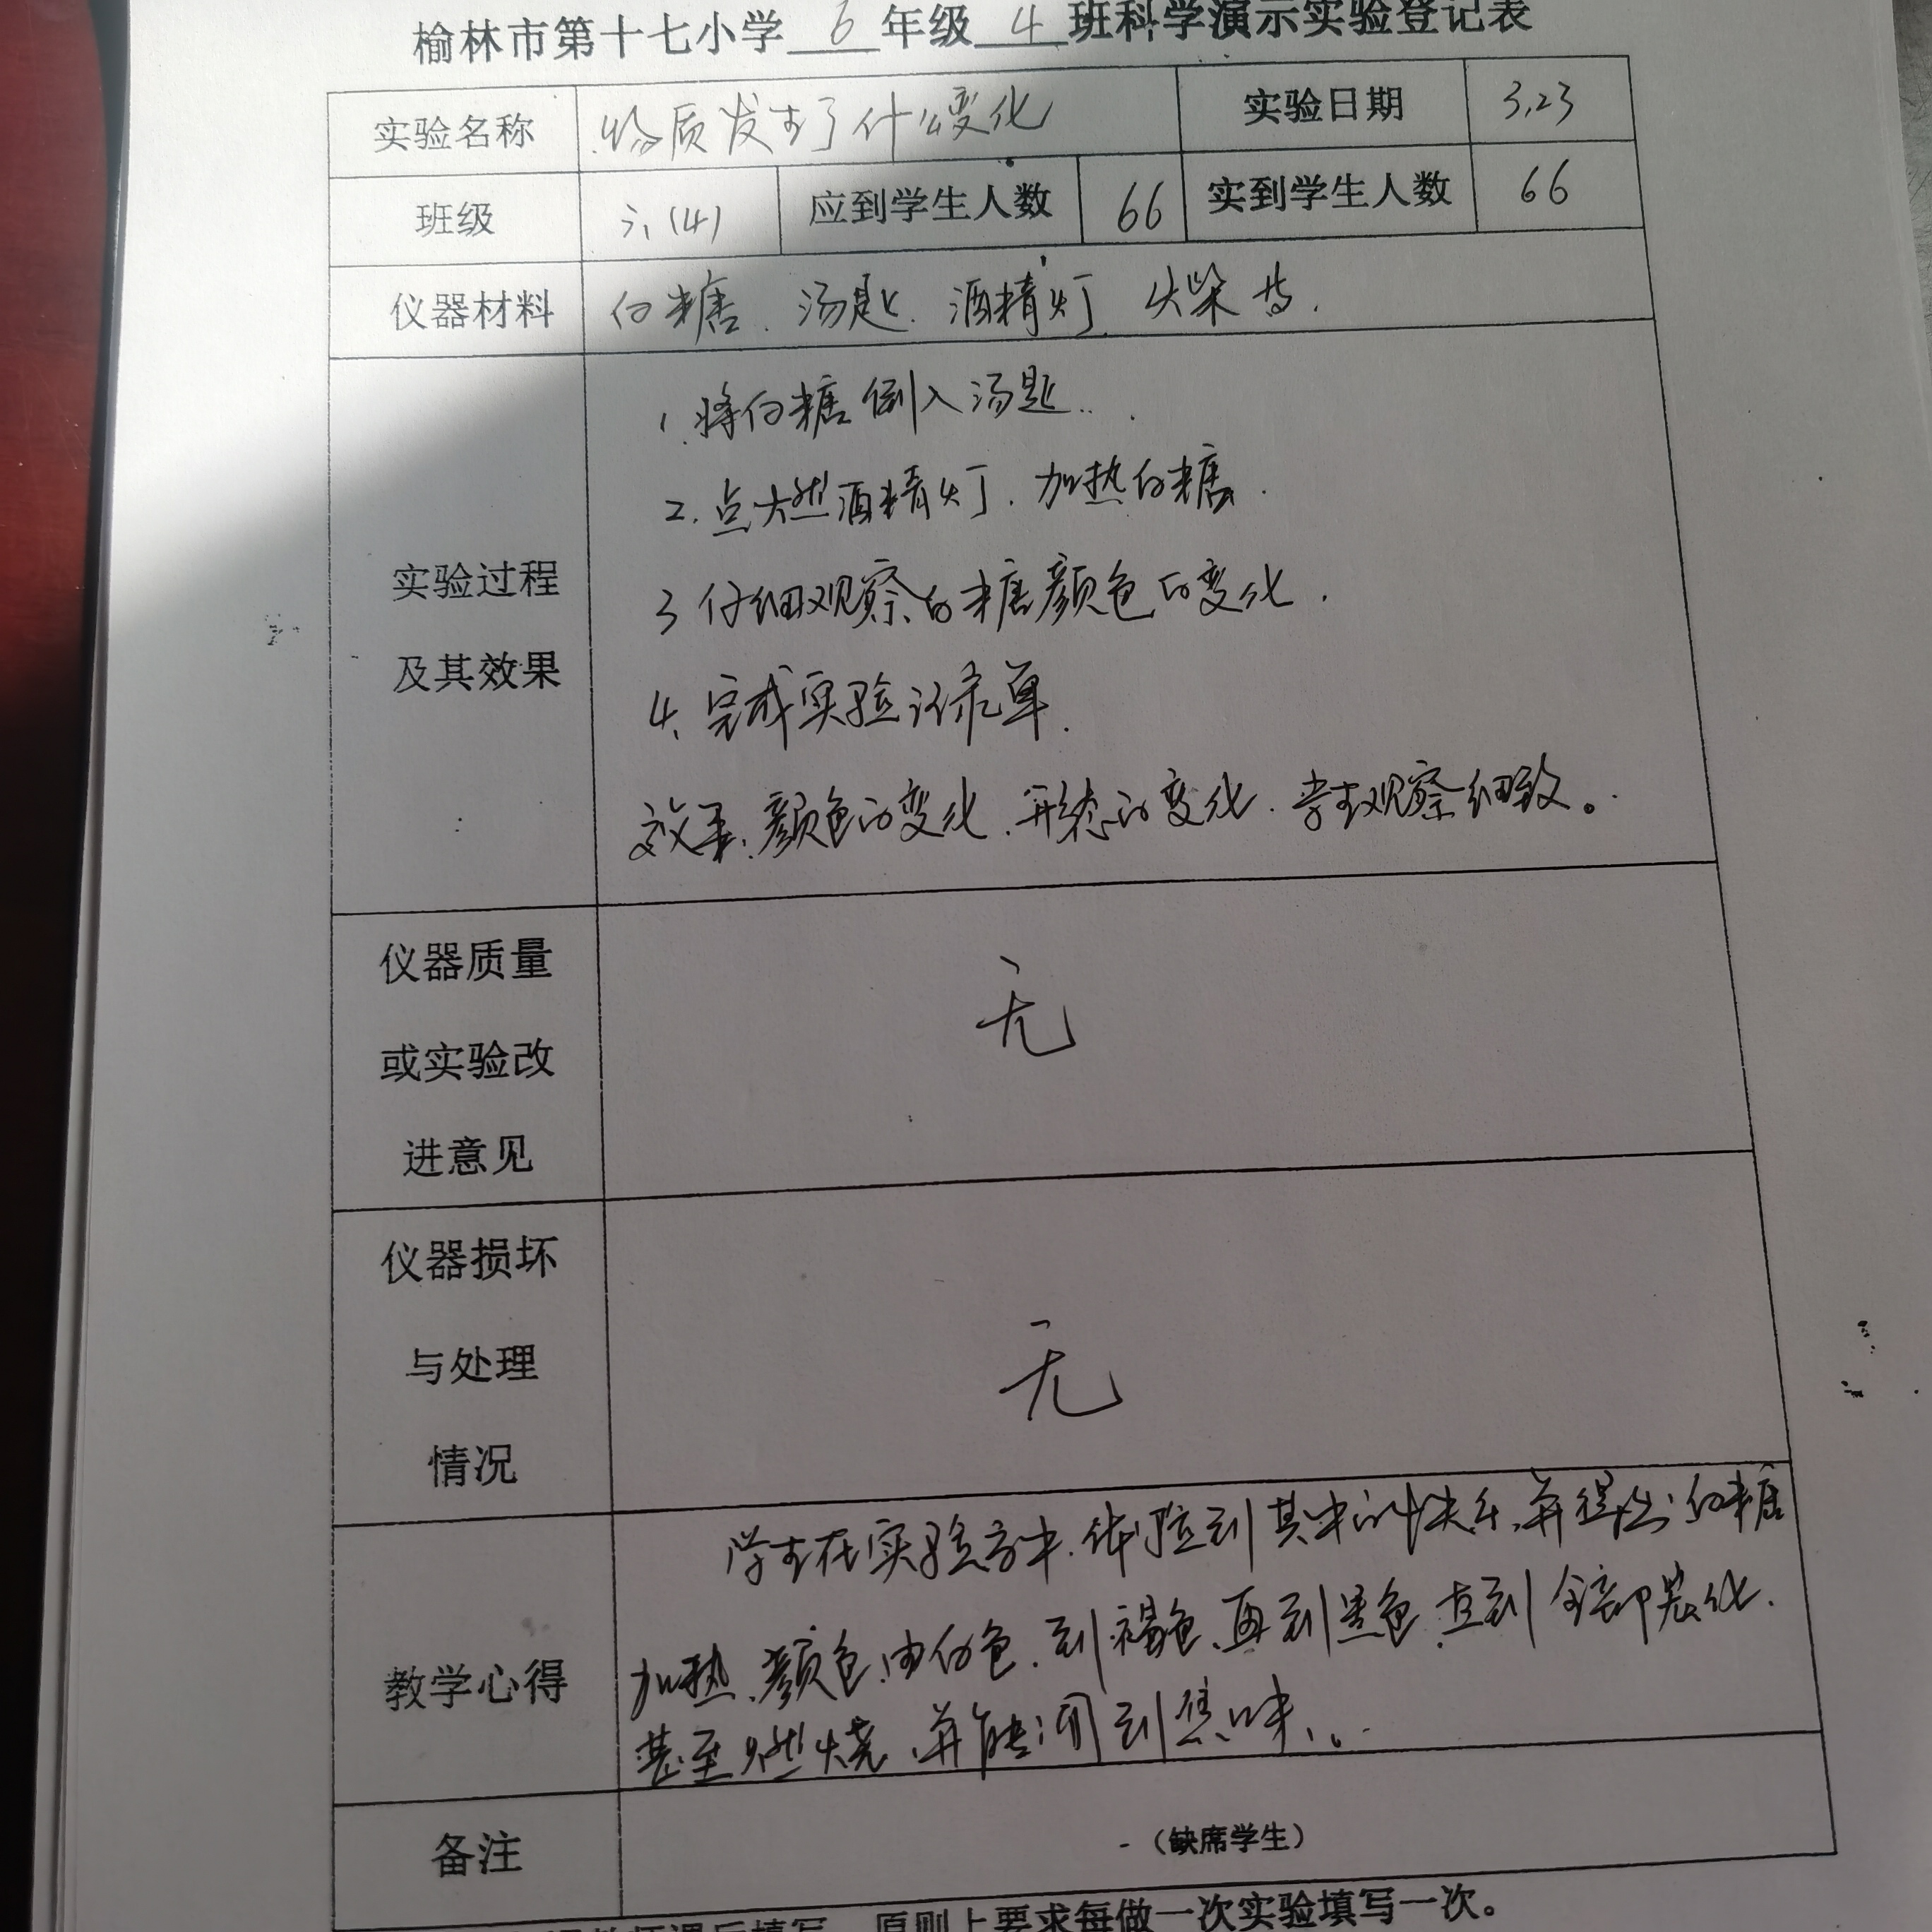 榆林市第十七小学 6 年级 4 班科学演示实验登记表
实验名称 物质发生了什么变化 实验日期 3.23
班级 六(4) 应到学生人数 66 实到学生人数 66
仪器材料 白糖、汤匙、酒精灯、火柴等.
实验过程
及其效果
1.将白糖倒入汤匙.
2.点燃酒精灯.加热白糖.
3 仔细观察白糖颜色的变化.
4、完成实验记录单.
效果:颜色的变化、形态的变化.学生观察细致。
仪器质量
或实验改
进意见
无
仪器损坏
与处理
情况
无
教学心得
学生在实验当中.体验到其中的快乐,并得出:白糖
加热、颜色由白色.到褐色、再到黑色.直到全部炭化.
甚至燃烧、并能闻到焦味。
备注 (缺席学生)
课后填写 原则上要求每做一次实验填写一次。